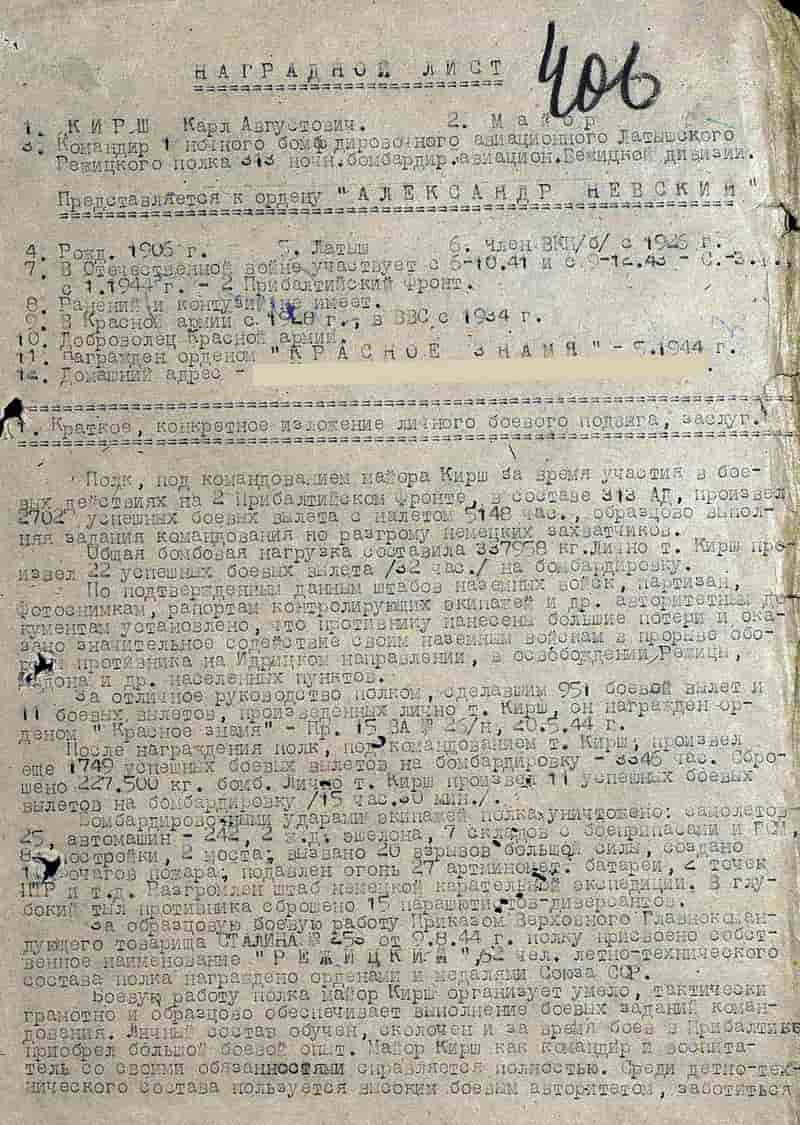 406
НАГРАДНОЙ ЛИСТ
1. КИРШ Карл Августович. 2. Майор
3. Командир 1 ночного бомбардировочного авиационного Латышского
Режицкого полка 313 ночн.бомбардир.авиацион.Бежицкой дивизии.
Представляется к ордену "АЛЕКСАНДР НЕВСКИЙ"
4. Рожд. 1906 г. 5. Латыш 6. Член ВКП/б/ с 1926 г.
7. В Отечественной войне участвует с 6-10.41 и с 9-12.43 -
с 1.1944 г. - 2 Прибалтийский Фронт.
8. Ранений и контузий не имеет.
9. В Красной армии с 1928 г., в ВВС с 1934 г.
10. Доброволец Красной армии.
11. Награжден орденом "КРАСНОЕ ЗНАМЯ" - 5.1944 г.
12. Домашний адрес -
1. Краткое, конкретное изложение личного боевого подвига, заслуг.
Полк, под командованием майора Кирш за время участия в бое-
вых действиях на 2 Прибалтийском фронте, в составе 313 АД, произвел
2702 успешных боевых вылета с налетом 5148 час., образцово выпол-
няя задания командования по разгрому немецких захватчиков.
Общая бомбовая нагрузка составила 337958 кг.Лично т. Кирш про-
извел 22 успешных боевых вылета /32 час./ на бомбардировку.
По подтвержденным данным штабов наземных войск, партизан,
фотоснимкам, рапортам контролирующих экипажей и др. авторитетным до-
кументам установлено, что противнику нанесены большие потери и ока-
зано значительное содействие своим наземным войскам в прорыве обо-
роны противника на Идрицком направлении, в освобождении Режицы,
Мадона и др. населенных пунктов.
За отличное руководство полком, сделавшим 951 боевой вылет и
11 боевых вылетов, произведенных лично т. Кирш, он награжден ор-
деном "Красное знамя" - Пр. 15 ВА № 26/н, 20.5.44 г.
После награждения полк, под командованием т. Кирш, произвел
еще 1749 успешных боевых вылетов на бомбардировку - 3346 час. Сбро-
шено 227.500 кг. бомб. Лично т. Кирш произвел 11 успешных боевых
вылетов на бомбардировку /15 час.30 мин./.
Бомбардировочными ударами экипажей полка уничтожено: самолетов-
25, автомашин - 242, 2 ж.д. эшелона, 7 складов с боеприпасами и ГСМ,
постройки, 2 моста, вызвано 20 взрывов большой силы, создано
очагов пожара, подавлен огонь 27 артминомет. батарей, 2 точек
и т.д. Разгромлен штаб немецкой карательной экспедиции. В глу-
бокий тыл противника сброшено 15 парашютистов-диверсантов.
За образцовую боевую работу Приказом Верховного Главнокоман-
дующего товарища СТАЛИНА № 253 от 9.8.44 г. полку присвоено собст-
венное наименование "РЕЖИЦКИЙ", 62 чел. летно-технического
состава полка награждено орденами и медалями Союза ССР.
Боевую работу полка майор Кирш организует умело, тактически
грамотно и образцово обеспечивает выполнение боевых заданий коман-
дования. Личный состав обучен, сколочен и за время боев в Прибалтике
приобрел большой боевой опыт. Майор Кирш как командир и воспита-
тель со своими обязанностями справляется полностью. Среди летно-тех-
нического состава пользуется высоким боевым авторитетом, заботиться